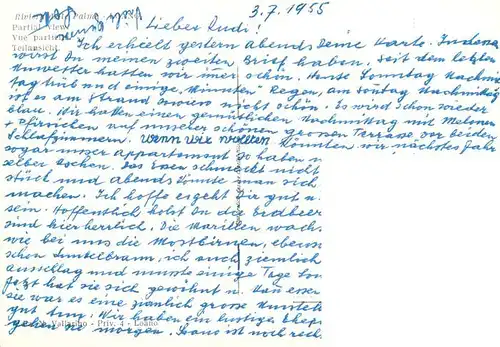 3.7.1955
Partial view
Vue
Teilansicht
Lieber Rudi!
Ich erhielt gestern abends Deine Karte. Indessen
wirst Du meinen zweiten Brief haben, seit dem letzten
Unwetter hatten wir immer schön. Heute Sonntag Nachmit
tag trüb und einige "Minuten" Regen, am Sontag Nachmittag
ist es am Strand sowieso nicht schön. Es wird schon wieder
blau. Wir hatten einen gemütlichen Nachmittag mit Melonen
+ Pfirsichen auf unserer schönen grossen Terrasse vor beiden
Schlafzimmern. Wenn wir wollten könnten wir nächstes Jahr
sogar unser Appartement so haben u
selber kochen. Das Essen schmeckt nicht
stück und abends könnte man sich
machen. Ich hoffe es geht Dir gut u.
sein. Hoffentlich holst Du die Erdbeer
sind hier herrlich. Die Marillen wach
wie bei uns die Mostbirnen, ebenso
schon dunkelbraun, ich auch ziemlich
ausschlag und musste einige Tage
Jetzt hat sie sich gewöhnt u.
sie war es eine ziemlich grosse
gut tun. Wir haben ein lustiges
gehen sie morgen. ist noch
Vallarino - Priv. 4 - Loano